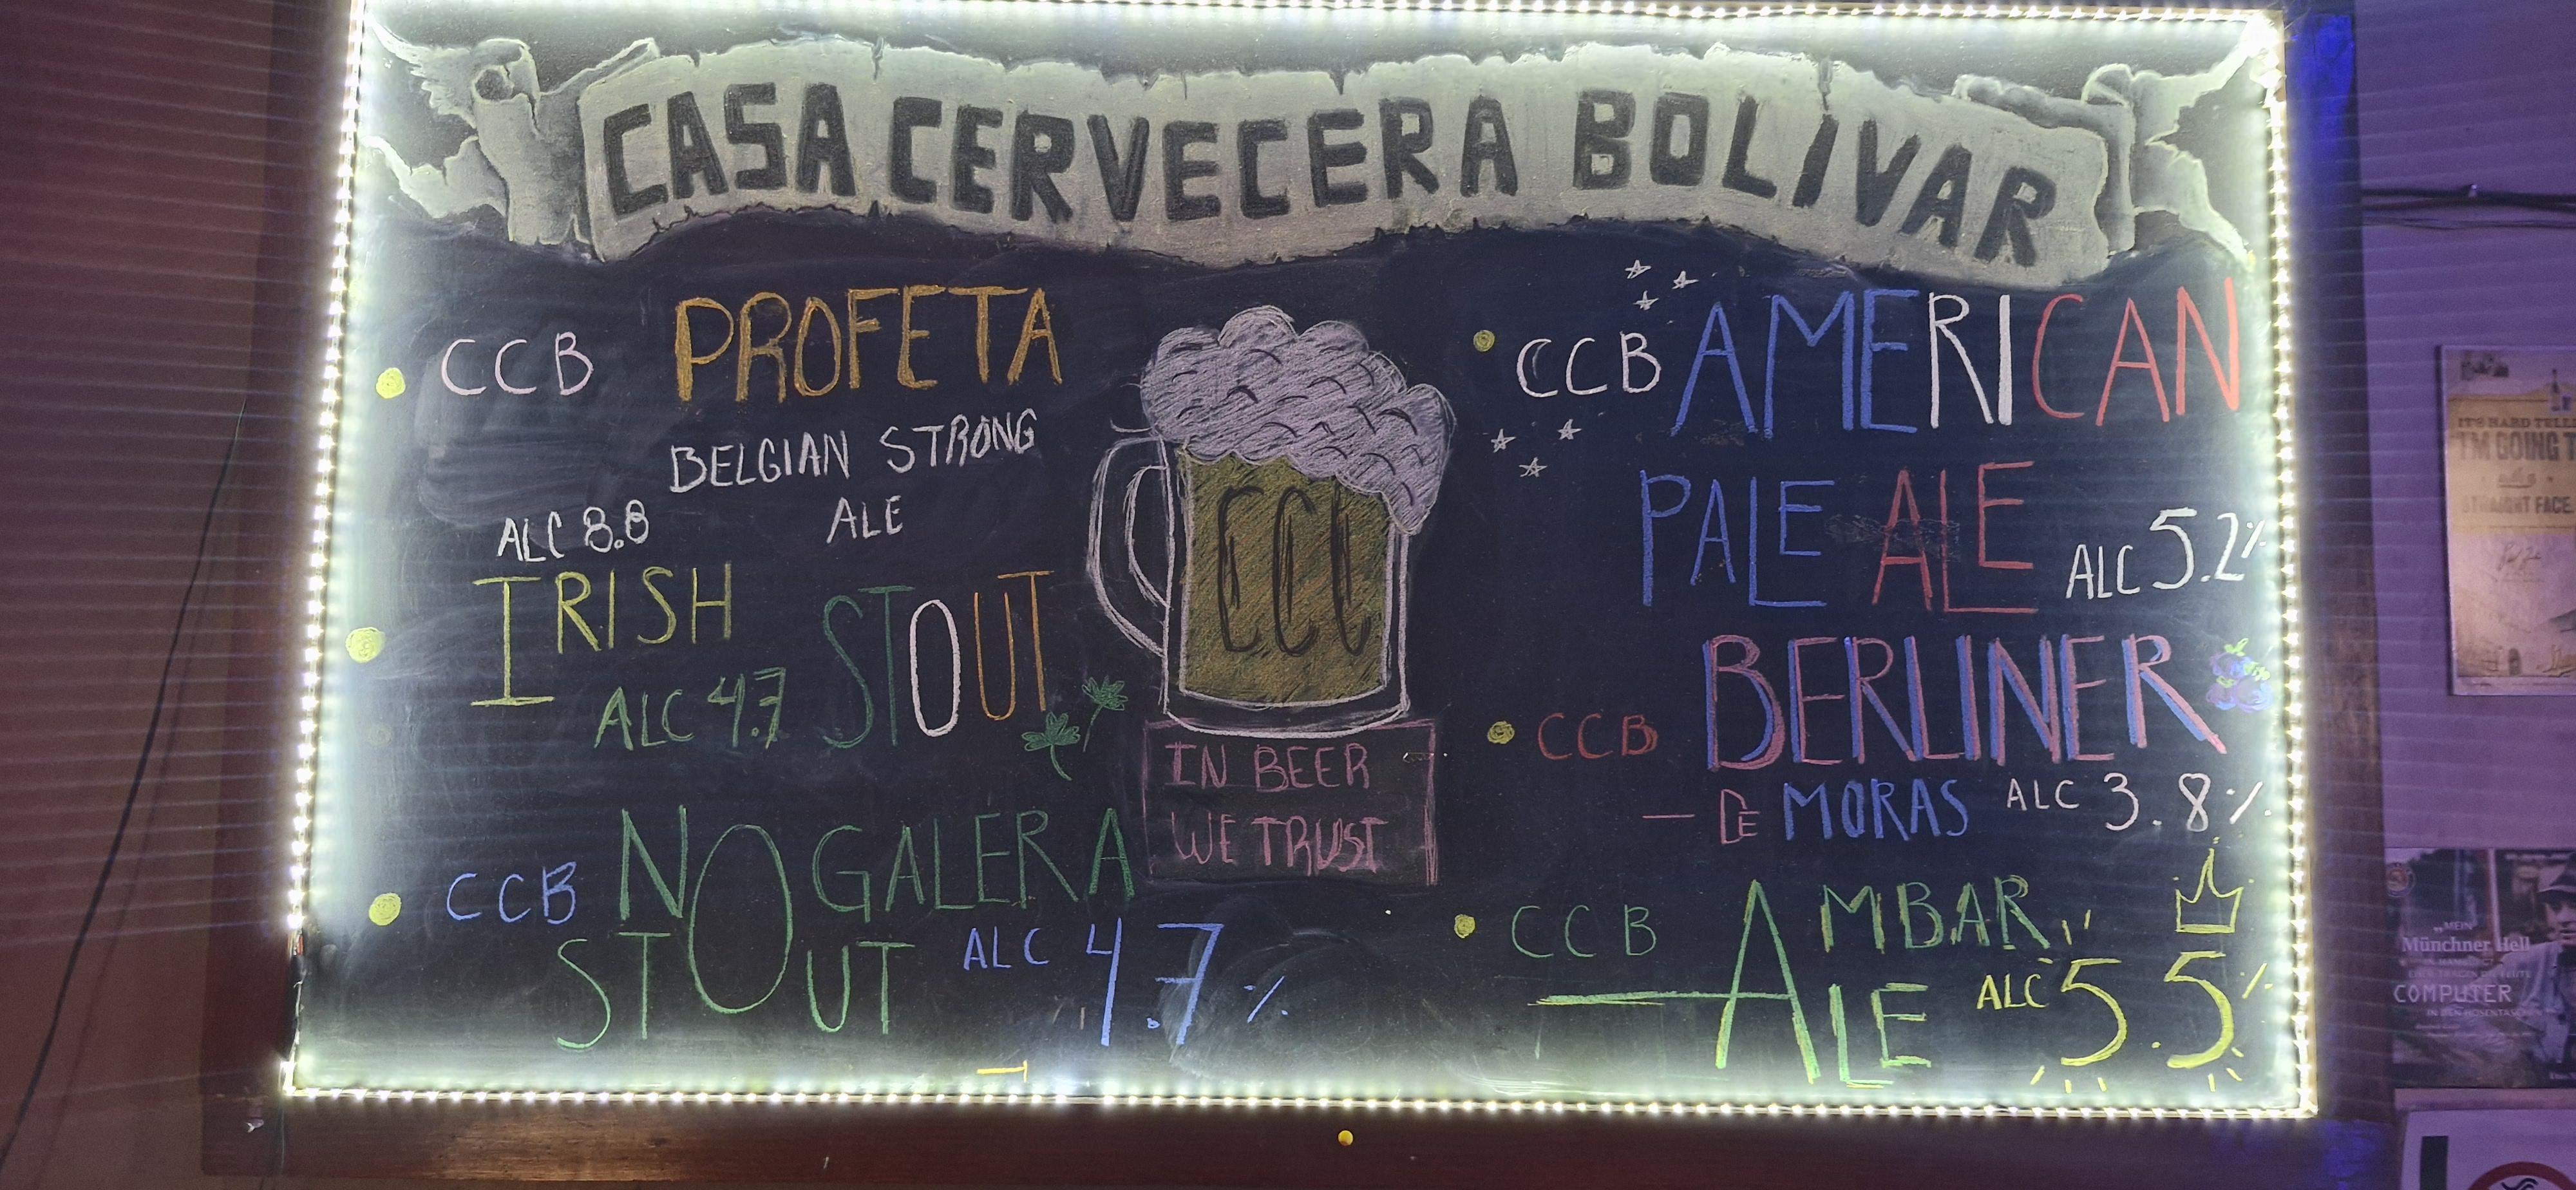 CASA CERVECERA BOLIVAR
CCB PROFETA
BELGIAN STRONG
ALE
ALC 8.8
IRISH STOUT
ALC 4.7
CCB NOGALERA
STOUT ALC 4.7%
IN BEER
WE TRUST
CCB AMERICAN
PALE ALE ALC 5.2%
CCB BERLINER
- DE MORAS ALC 3.8%
CCB AMBAR
ALE ALC 5.5%
IT'S HARD
I'M GOING
STRAIGHT FACE
„MEIN
Münchner Hell
COMPUTER
IN DEN HOSENTASCHEN